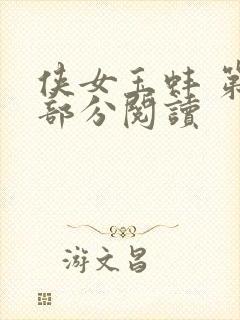 侠女玉蚌 第
部分閱讀
游文昌